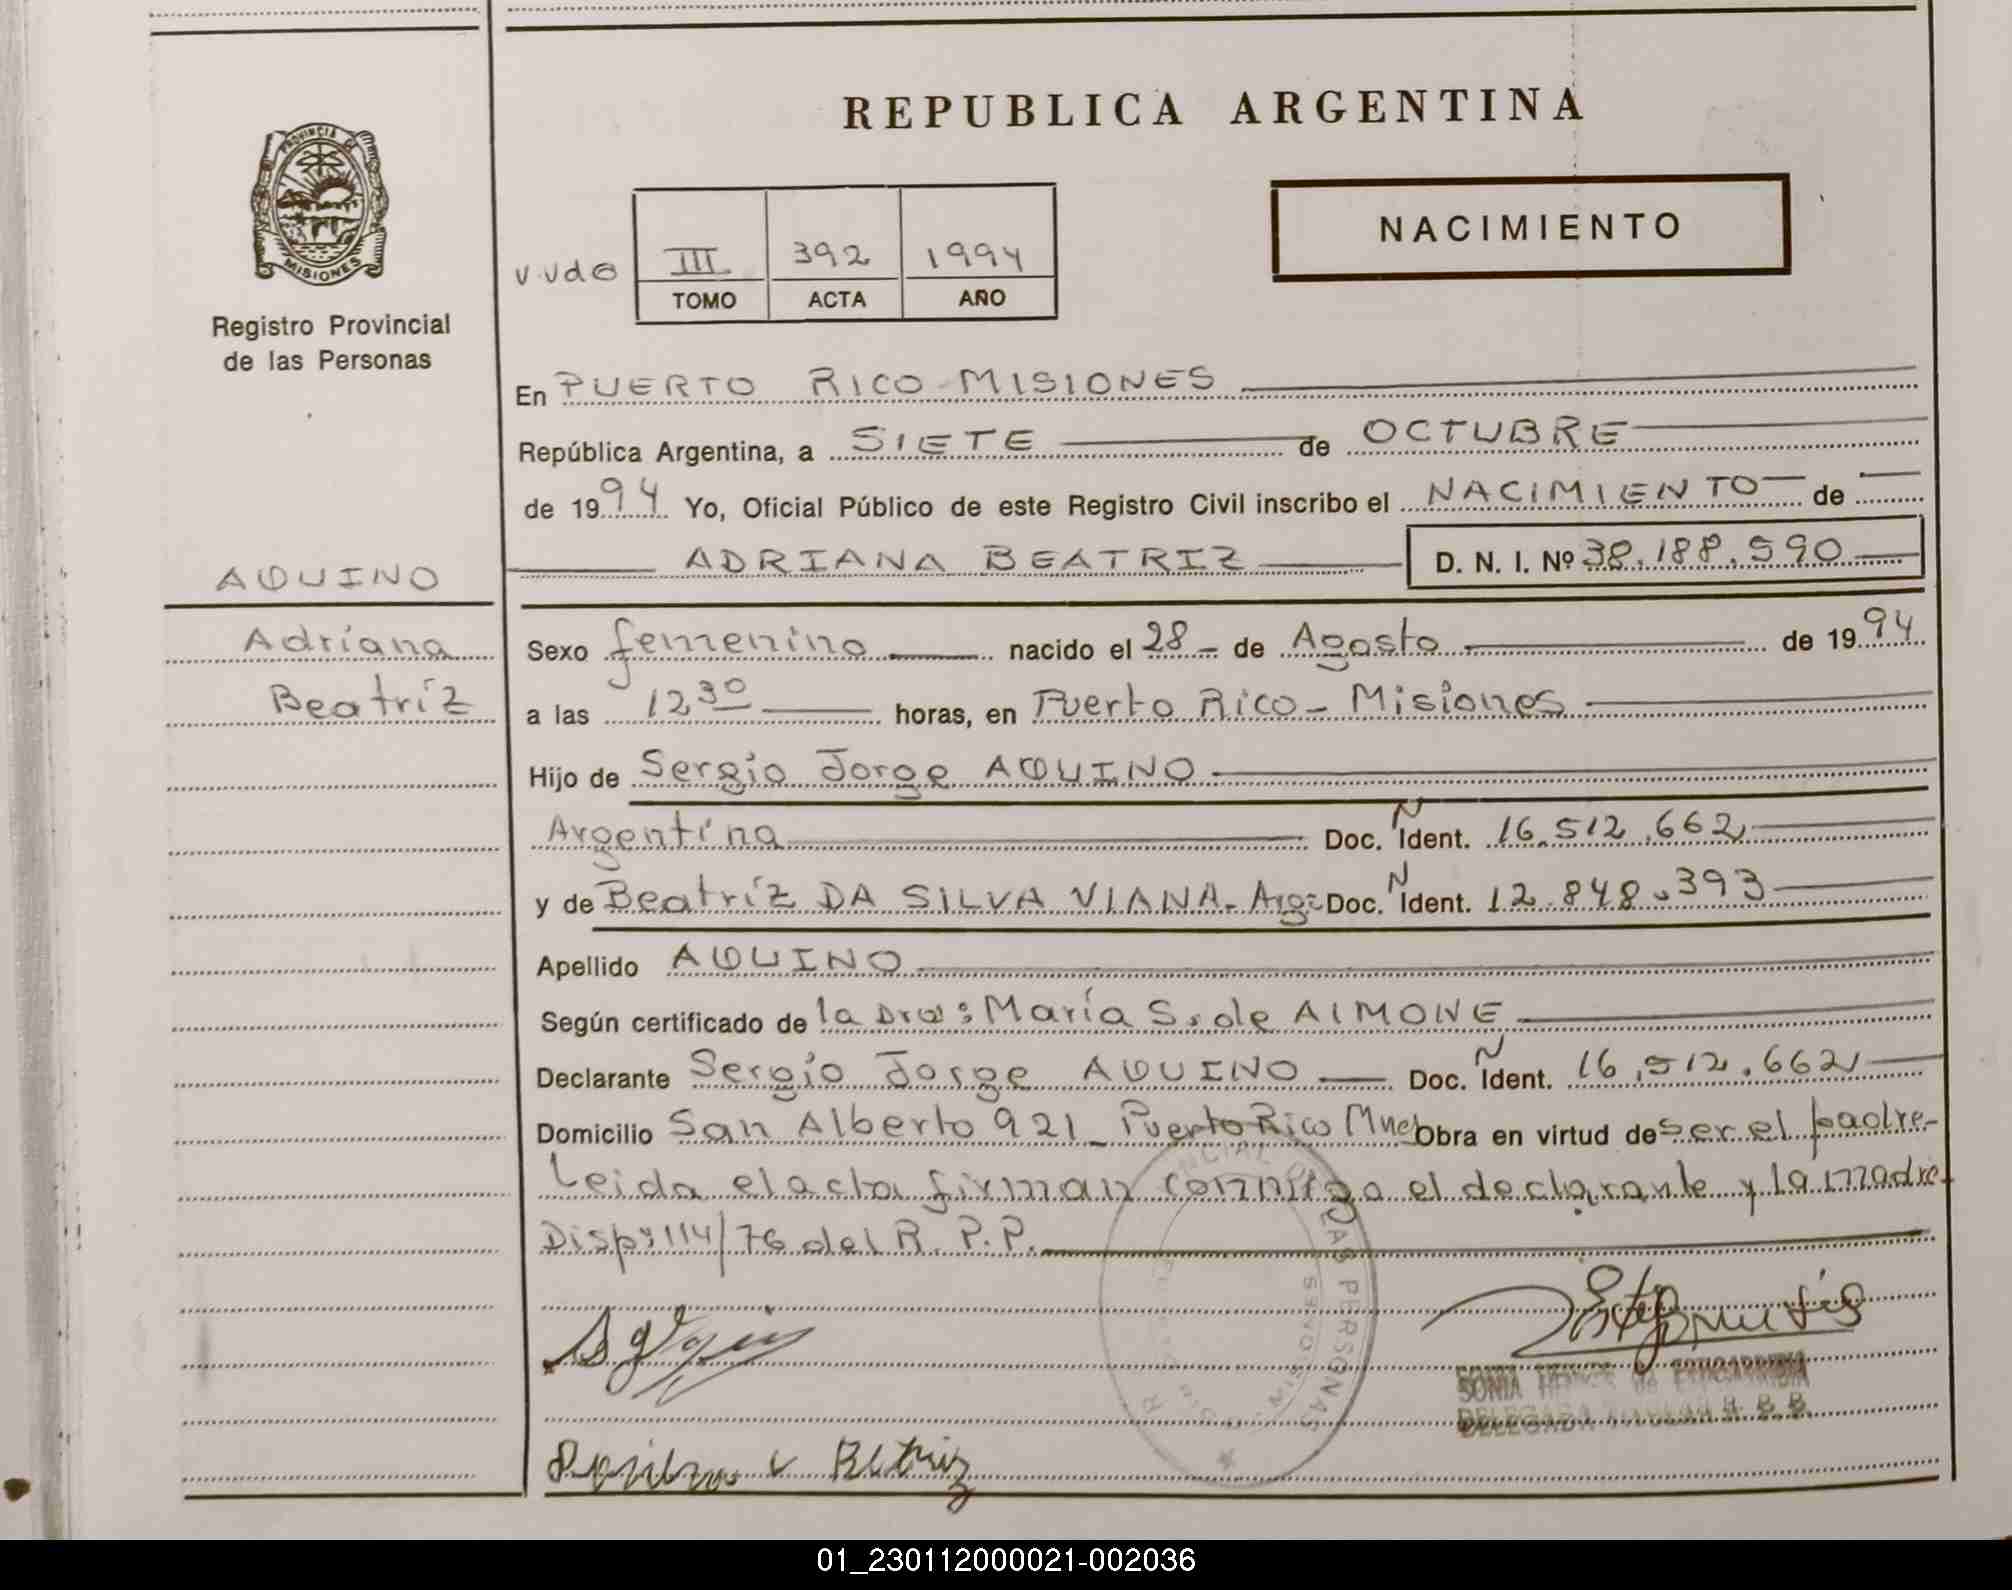 REPUBLICA ARGENTINA
PROVINCIA DE
MISIONES
Registro Provincial
de las Personas
NACIMIENTO
III 392 1994
TOMO ACTA AÑO
En PUERTO RICO - MISIONES
República Argentina, a SIETE de OCTUBRE
de 1994 Yo, Oficial Público de este Registro Civil inscribo el NACIMIENTO de
ADRIANA BEATRIZ D. N. I. Nº 38.188.590
AQUINO
Adriana
Beatríz
Sexo femenino nacido el 28 de Agosto de 1994
a las 12 30 horas, en Puerto Rico - Misiones
Hijo de Sergio Jorge AQUINO
Argentina Doc. N Ident. 16.512.662
y de Beatríz DA SILVA VIANA - Arg: Doc. N Ident. 12.848.393
Apellido AQUINO
Según certificado de la Dra: María S. de AIMONE
Declarante Sergio Jorge AQUINO Doc. N Ident. 16.512.662
Domicilio San Alberto 921 - Puerto Rico Mnes Obra en virtud de ser el padre -
Leida el acta firman conmigo el declarante y la madre
Disp: 114/76 del R. P. P.
LAS PERSONAS
MISIONES
SONIA
DELEGADA
Beatriz
01_230112000021-002036